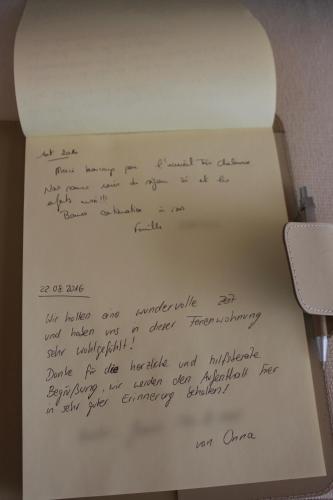 Merci beaucoup pour l'accueil Très chaleureux
Nous
enfants aussi!!!
Bonne continuation à vous
Famille
22.08.2016
Wir hatten eine wundervolle Zeit
und haben uns in dieser Ferienwohnung
sehr wohlgefühlt!
Danke für die herzliche und hilfsbereite
Begrüßung, wir werden den Aufenthalt hier
in sehr guter Erinnerung behalten!
von Onna